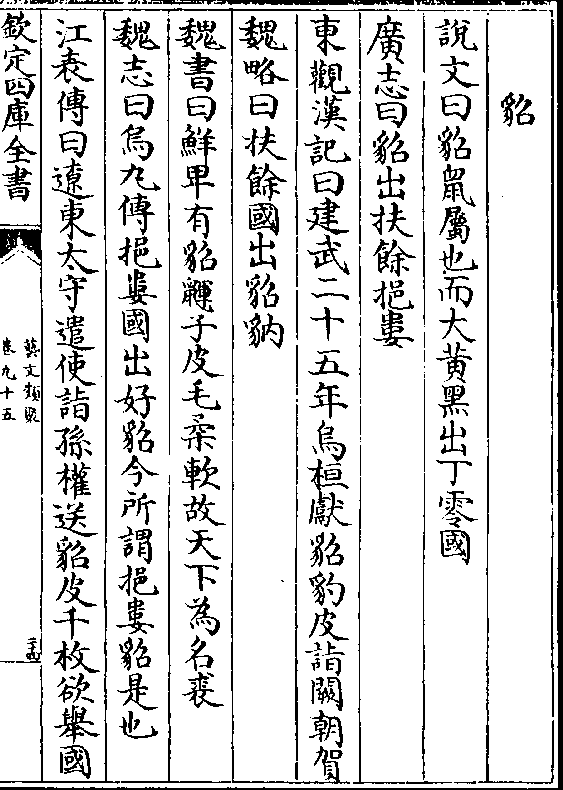 貂
說文曰貂鼠屬也而大黃黑出丁零國
廣志曰貂出扶餘挹婁
東觀漢記曰建武二十五年烏桓獻貂豹皮詣闕朝賀
魏略曰扶餘國出貂豽
魏書曰鮮卑有貂鼲子皮毛柔軟故天下為名裘
魏志曰烏九傳挹婁國出好貂今所謂挹婁貂是也
江表傳曰遼東太守遣使詣孫權送貂皮千枚欲舉國
欽定四庫全書
藝文類聚
卷九十五